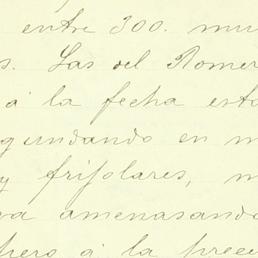 entre 300. mu
s. Las del Romer
á la fecha esta
gundando en m
y frijolares, m
va amenasando
pero á la prec